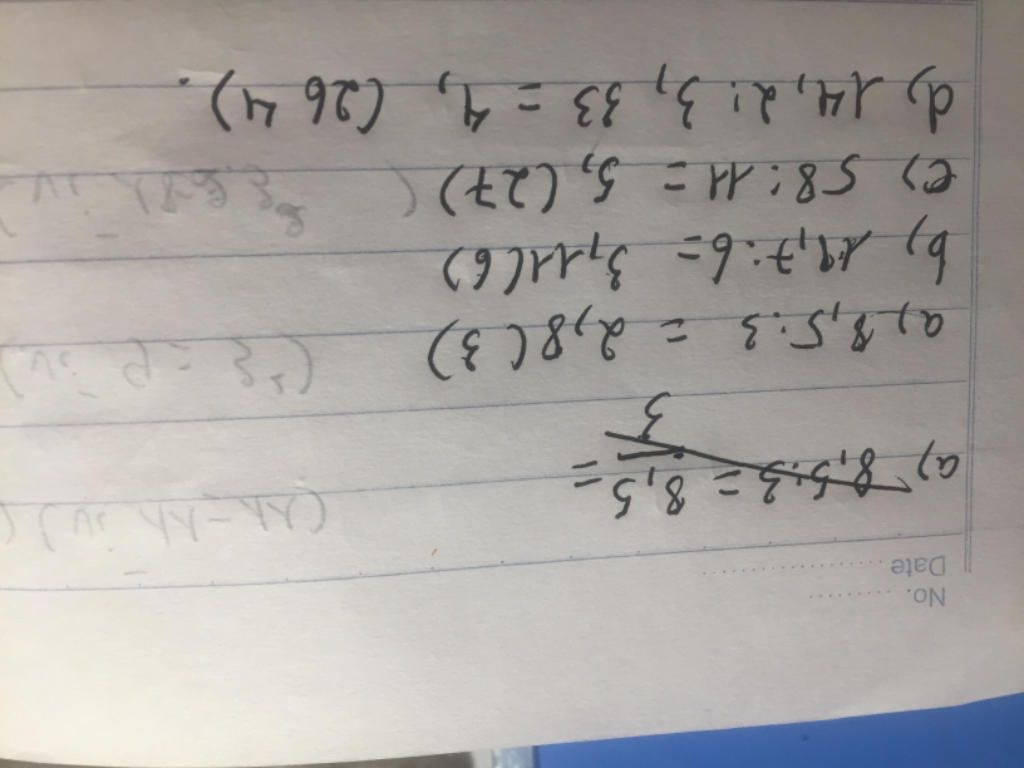 No. ..........
Date ....................
a) 8,5:3 = 8,5/3 =
a) 8,5:3 = 2,8(3)
b) 18,7:6 = 3,11(6)
c) 58:11 = 5,(27)
d) 14,2:3,33 = 4,(264).